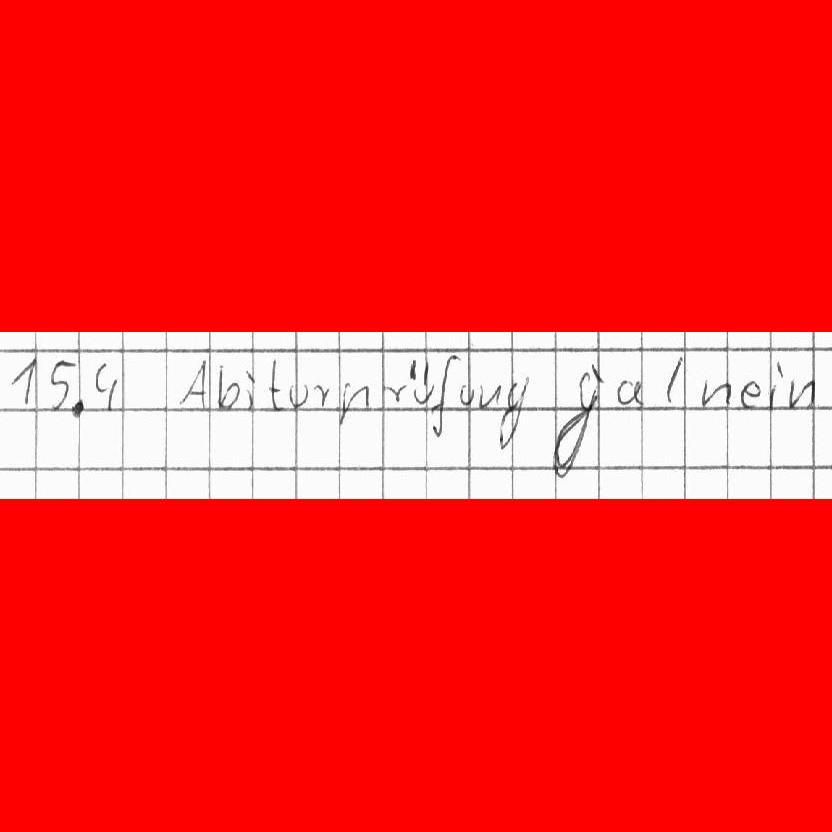 15.4 Abiturprüfung ja/nein